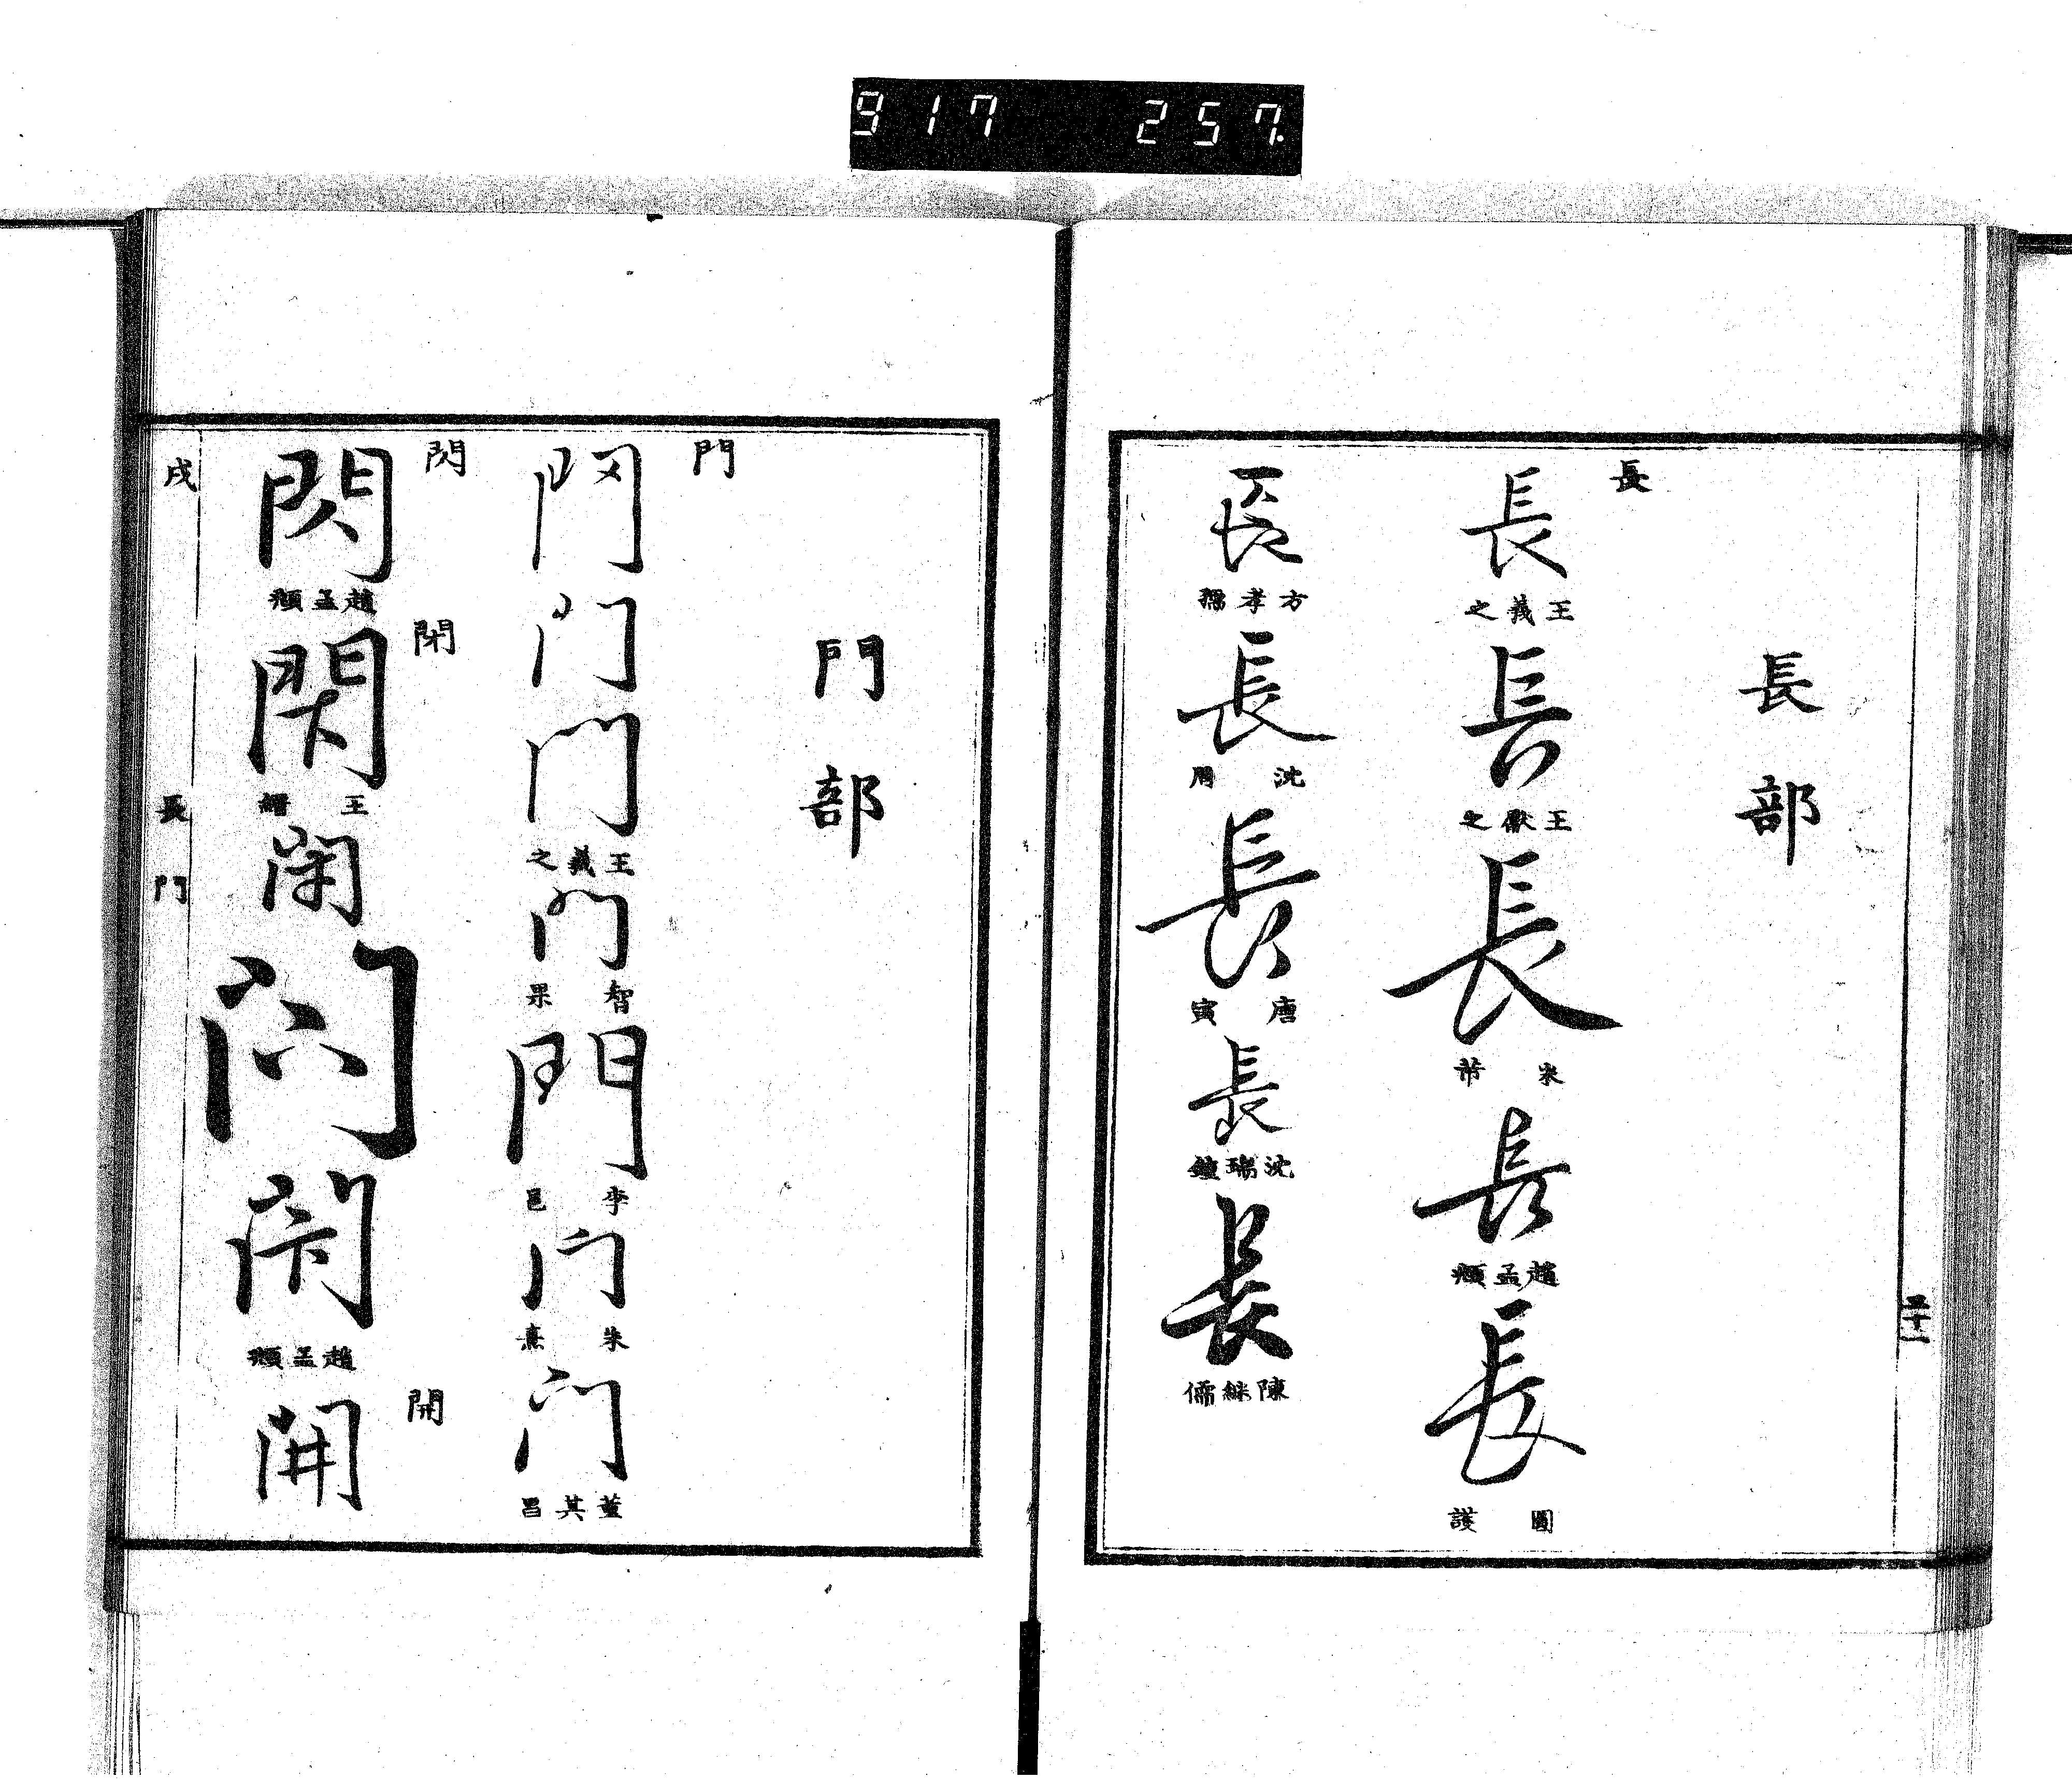 917 257
長部
長
長
王羲之
長
王獻之
長
米芾
長
趙孟頫
長
圓護
長
方孝孺
長
沈周
長
唐寅
長
沈瑞鐘
長
陳継儒
門部
門
門
門
門
王羲之
門
智果
門
李邑
門
朱熹
門
董其昌
閃
閃
趙孟頫
閉
閉
王
閉
閉
閉
趙孟頫
開
開
戌
長門